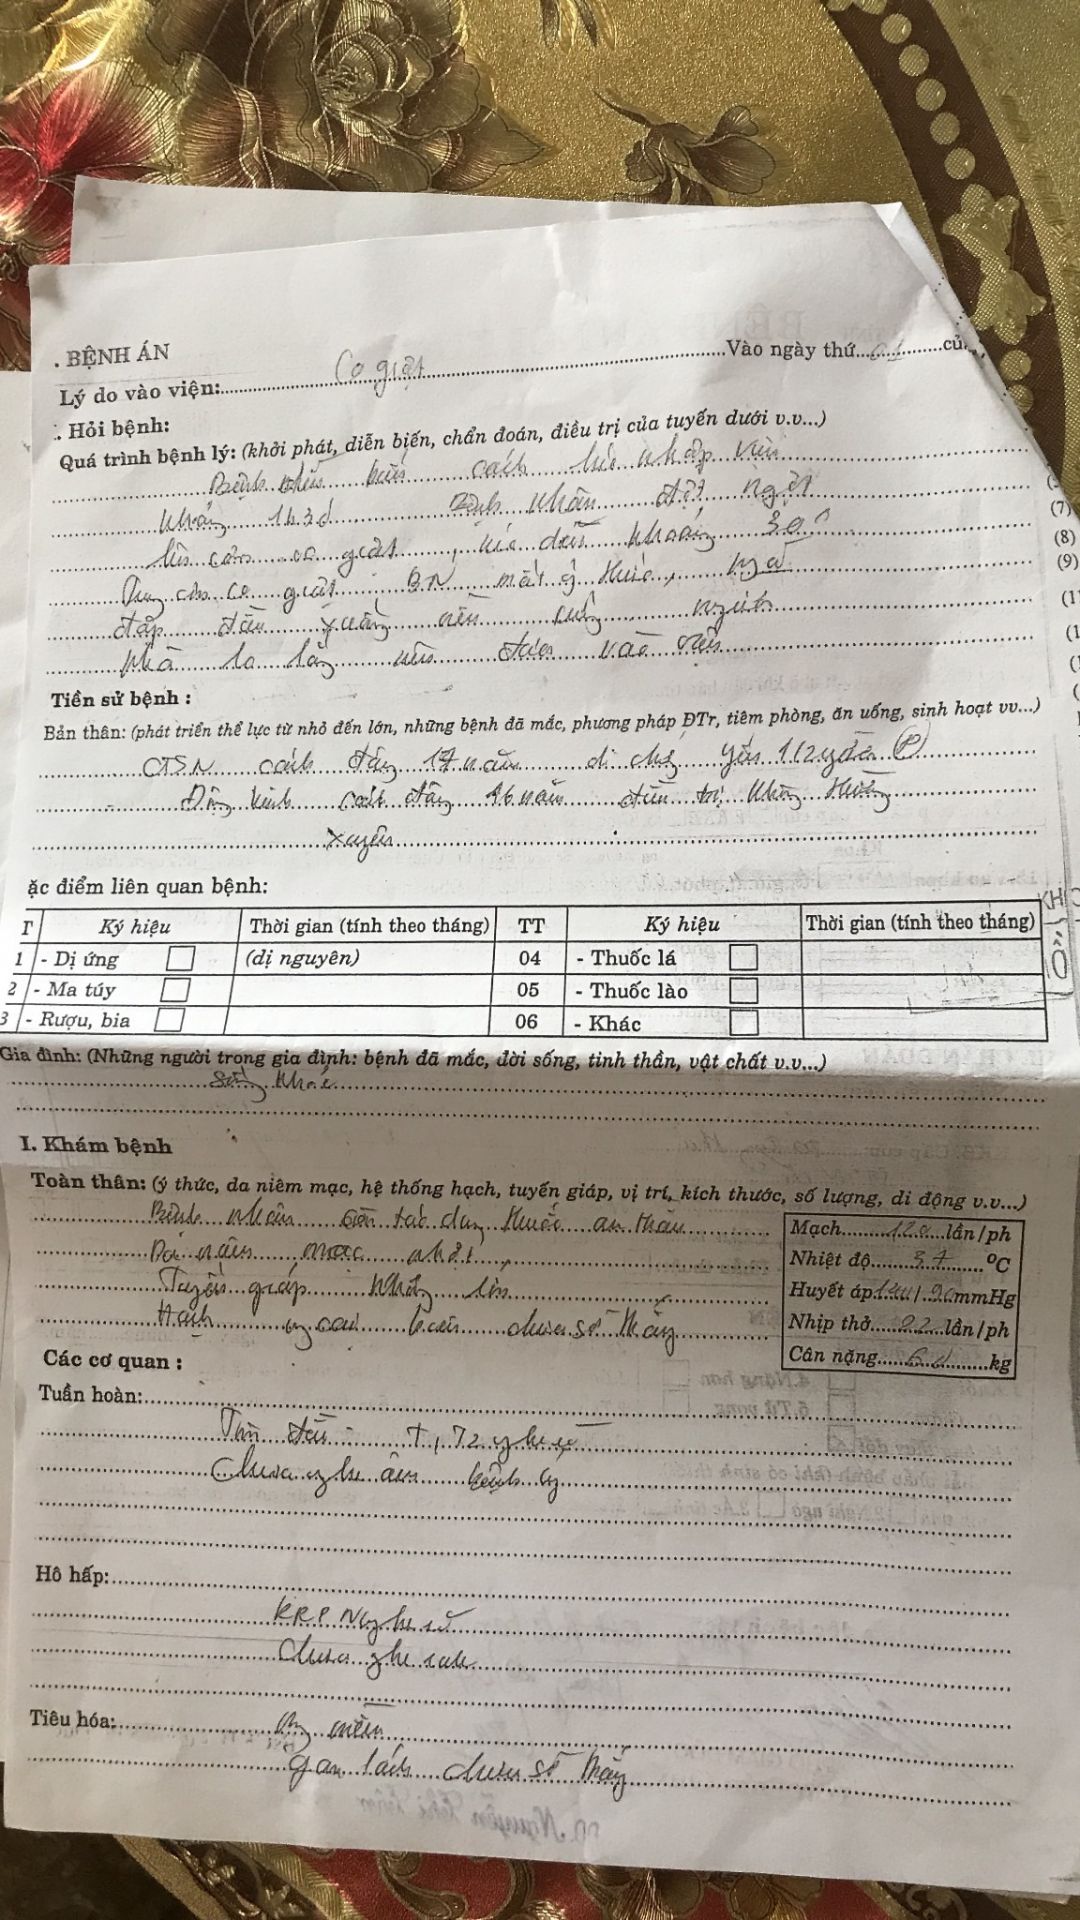 . BỆNH ÁN
Lý do vào viện: Co giật Vào ngày thứ 01 củ
. Hỏi bệnh:
Quá trình bệnh lý: (khởi phát, diễn biến, chẩn đoán, điều trị của tuyến dưới v.v...)
Bệnh nhân cách lúc nhập viện
khoảng 1h30 Bệnh nhân đột ngột
lên cơn co giật, kéo dài khoảng
(7)
Trong cơn co giật BN mất ý thức, ngã
(8)
đập đầu xuống nền người
(9)
nhà lo lắng nên đưa vào viện
Tiền sử bệnh :
Bản thân: (phát triển thể lực từ nhỏ đến lớn, những bệnh đã mắc, phương pháp ĐTr, tiêm phòng, ăn uống, sinh hoạt vv...)
CTSN cách đây 17 năm di chứng yếu 1/2 người (P)
Động kinh cách đây 16 năm điều trị không thường
xuyên
ặc điểm liên quan bệnh:
T Ký hiệu Thời gian (tính theo tháng) TT Ký hiệu Thời gian (tính theo tháng)
1 - Dị ứng (dị nguyên) 04 - Thuốc lá
2 - Ma túy 05 - Thuốc lào
3 - Rượu, bia 06 - Khác
Gia đình: (Những người trong gia đình: bệnh đã mắc, đời sống, tinh thần, vật chất v.v...)
sống khoẻ
I. Khám bệnh
Toàn thân: (ý thức, da niêm mạc, hệ thống hạch, tuyến giáp, vị trí, kích thước, số lượng, di động v.v...)
Bệnh nhân còn tác dụng thuốc an thần
Da niêm mạc nhợt
Tuyến giáp không lớn
Hạch ngoại biên chưa sờ thấy
Mạch 120 lần/ph
Nhiệt độ 37 ºC
Huyết áp 140/90 mmHg
Nhịp thở 22 lần/ph
Cân nặng kg
Các cơ quan :
Tuần hoàn:
Tim đều T1, T2 nghe rõ
Chưa nghe âm bệnh lý
Hô hấp:
RRPN nghe rõ
Chưa nghe rale
Tiêu hóa: Bụng mềm
gan lách chưa sờ thấy